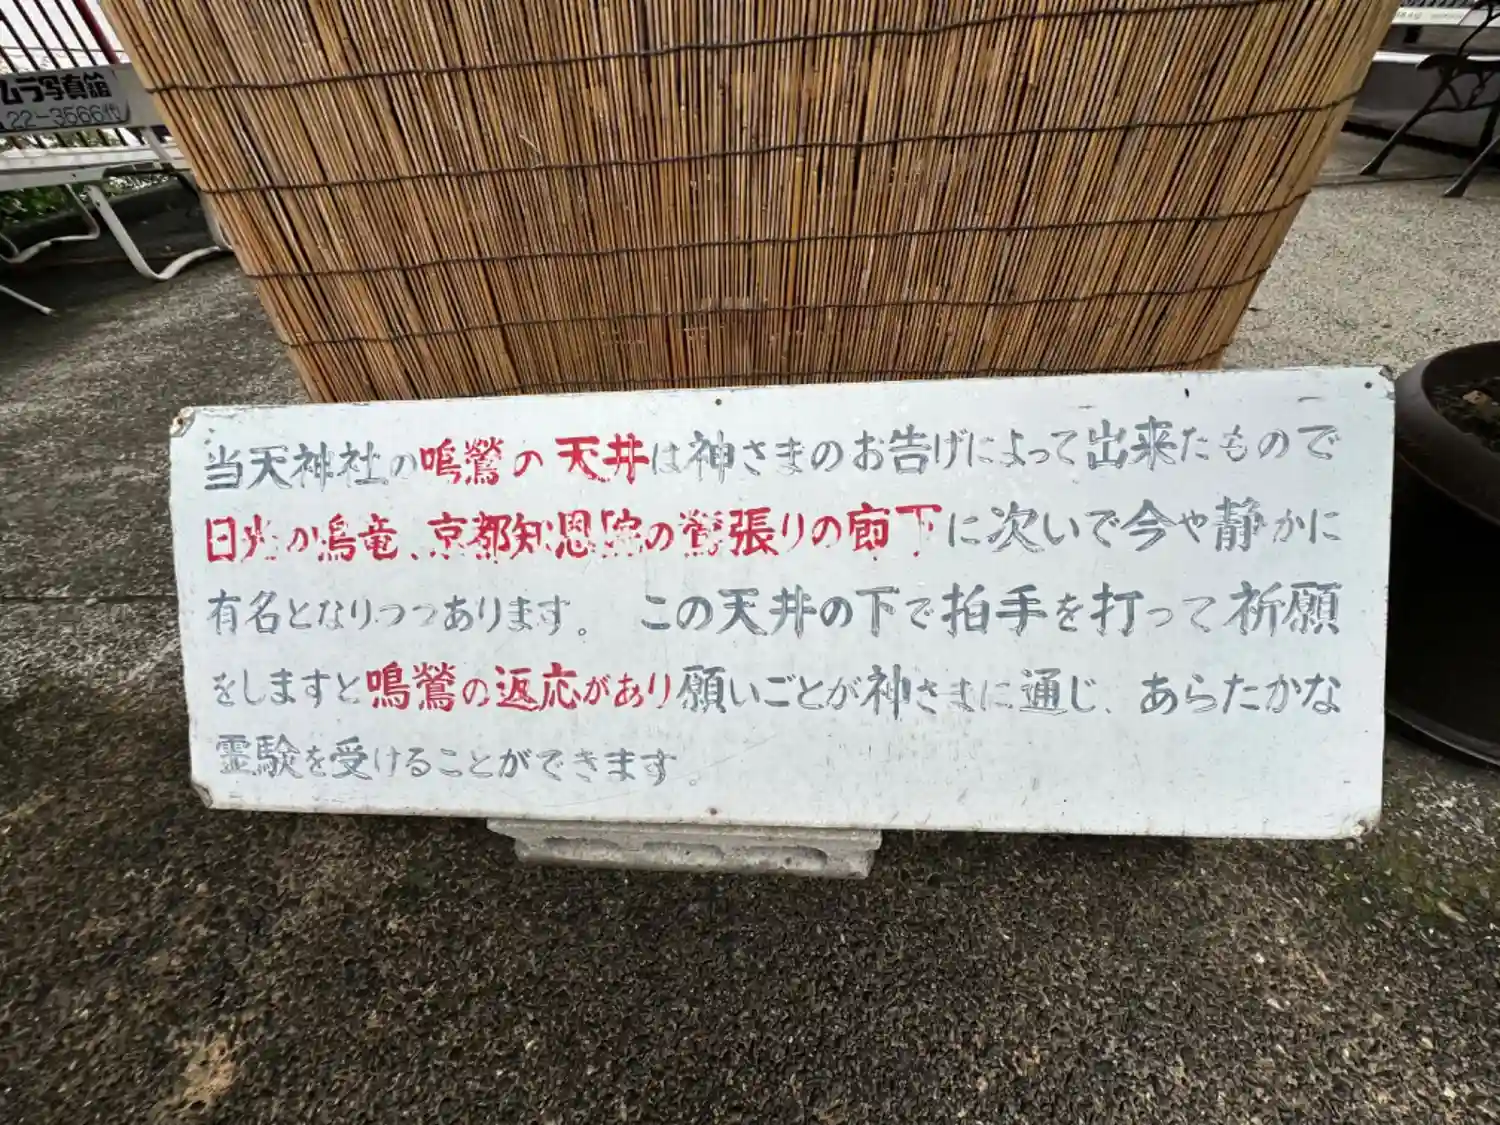 ムラ写真館
22-3566代
当天神社の鳴鶯の天井は神さまのお告げによって出来たもので
日光の鳴竜、京都知恩院の鶯張りの廊下に次いで今や静かに
有名となりつつあります。 この天井の下で拍手を打って祈願
をしますと鳴鶯の返応があり願いごとが神さまに通じ、あらたかな
霊験を受けることができます。